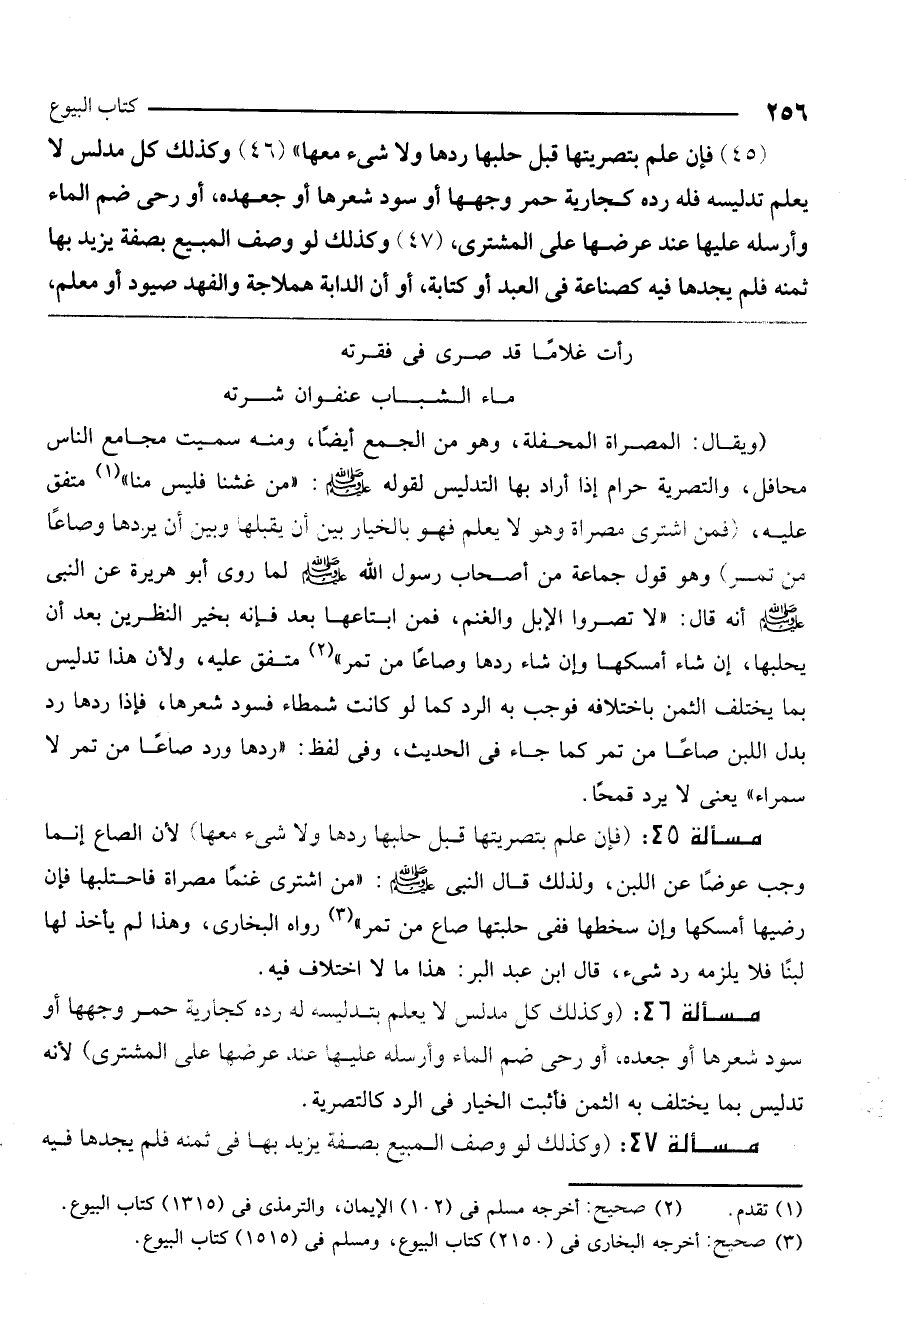 ٢٥٦ كتاب البيوع
(٤٥) فإن علم بتصريتها قبل حلبها ردها ولا شىء معها» (٤٦) وكذلك كل مدلس لا
يعلم تدليسه فله رده كجارية حمر وجهها أو سود شعرها أو جعهده، أو رحى ضم الماء
وأرسله عليها عند عرضها على المشترى، (٤٧) وكذلك لو وصف المبيع بصفة يزيد بها
ثمنه فلم يجدها فيه كصناعة فى العبد أو كتابة، أو أن الدابة هملاجة والفهد صيود أو معلم،
رأت غلامًا قد صرى فى فقرته
ماء الشباب عنفوان شرته
(ويقال: المصراة المحفلة، وهو من الجمع أيضًا، ومنه سميت مجامع الناس
محافل، والتصرية حرام إذا أراد بها التدليس لقوله ﷺ : «من غشنا فليس منا»(١) متفق
عليه، (فمن اشترى مصراة وهو لا يعلم فهو بالخيار بين أن يقبلها وبين أن يردها وصاعًا
من تمر) وهو قول جماعة من أصحاب رسول الله ﷺ لما روى أبو هريرة عن النبى
ﷺ أنه قال: «لا تصروا الإبل والغنم، فمن ابتاعها بعد فإنه بخير النظرين بعد أن
يحلبها، إن شاء أمسكها وإن شاء ردها وصاعًا من تمر»(٢) متفق عليه، ولأن هذا تدليس
بما يختلف الثمن باختلافه فوجب به الرد كما لو كانت شمطاء فسود شعرها، فإذا ردها رد
بدل اللبن صاعًا من تمر كما جاء فى الحديث، وفى لفظ: «ردها ورد صاعًا من تمر لا
سمراء» يعنى لا يرد قمحًا.
مسألة ٤٥: (فإن علم بتصريتها قبل حلبها ردها ولا شىء معها) لأن الصاع إنما
وجب عوضًا عن اللبن، ولذلك قال النبى ﷺ : «من اشترى غنمًا مصراة فاحتلبها فإن
رضيها أمسكها وإن سخطها ففى حلبتها صاع من تمر»(٣) رواه البخارى، وهذا لم يأخذ لها
لبنًا فلا يلزمه رد شىء، قال ابن عبد البر: هذا ما لا اختلاف فيه.
مسألة ٤٦: (وكذلك كل مدلس لا يعلم بتدليسه له رده كجارية حمر وجهها أو
سود شعرها أو جعده، أو رحى ضم الماء وأرسله عليها عند عرضها على المشترى) لأنه
تدليس بما يختلف به الثمن فأثبت الخيار فى الرد كالتصرية.
مسألة ٤٧: (وكذلك لو وصف المبيع بصفة يزيد بها فى ثمنه فلم يجدها فيه
(١) تقدم. (٢) صحيح: أخرجه مسلم فى (١٠٢) الإيمان، والترمذى فى (١٣١٥) كتاب البيوع.
(٣) صحيح: أخرجه البخارى فى (٢١٥٠) كتاب البيوع، ومسلم فى (١٥١٥) كتاب البيوع.